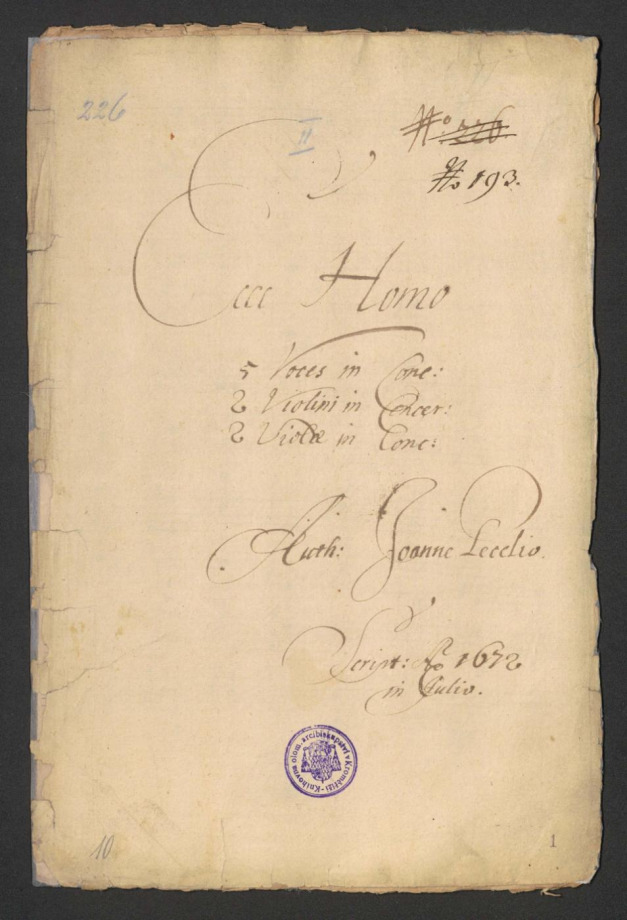 226
II
No 226.
No 193.
Ecce Homo
5 Voces in Conc:
2 Violini in Concer:
2 Violæ in Conc:
Auth: Joanne Lecelio.
Script: Ao 1672
in Julio.
Knihovna olom. arcibiskupství v Kroměříži
10
1